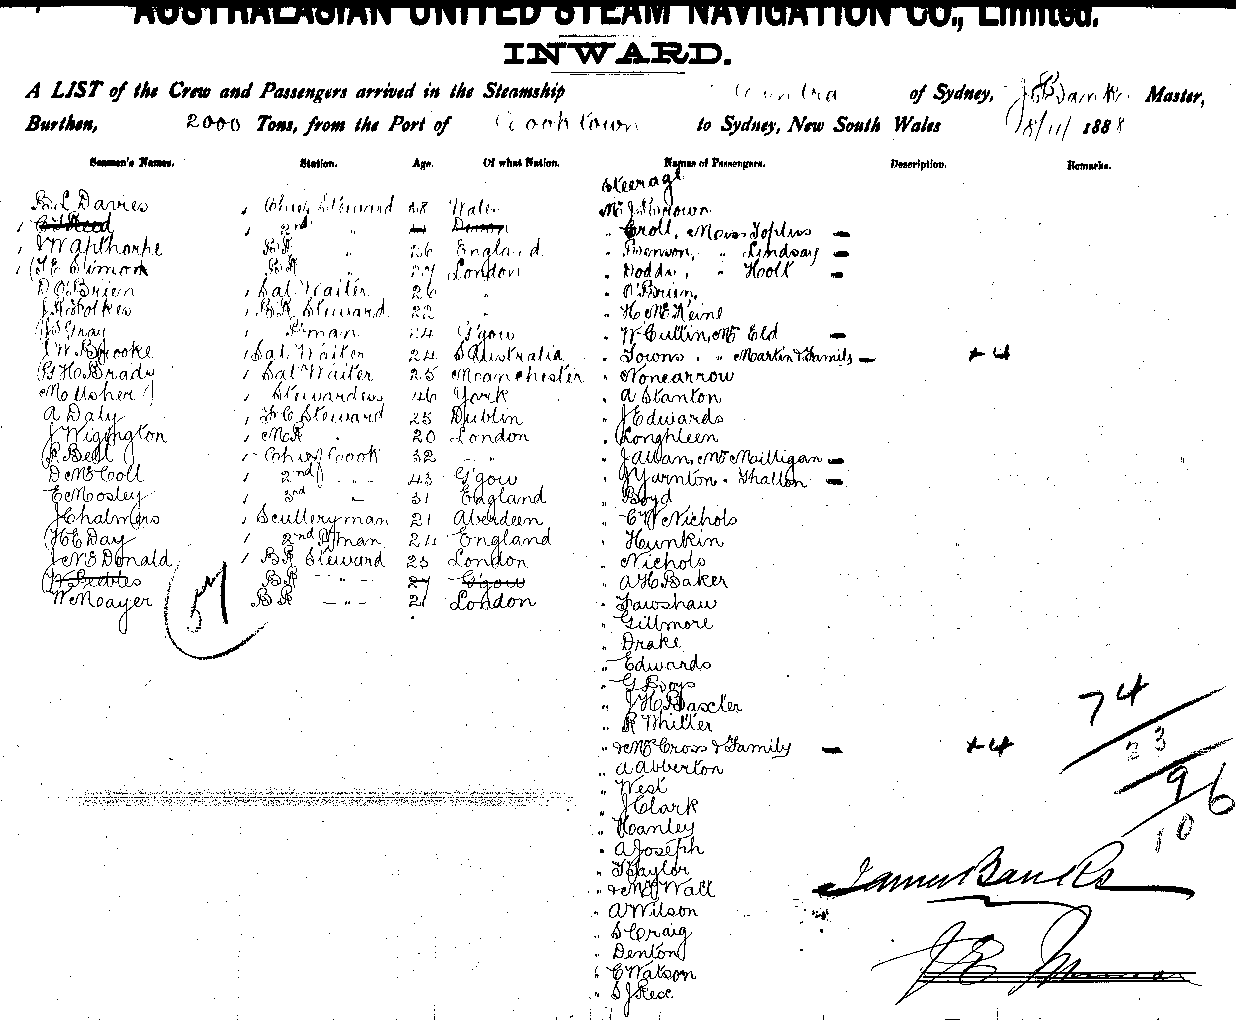 AUSTRALASIAN UNITED STEAM NAVIGATION CO., Limited.
INWARD.
A LIST of the Crew and Passengers arrived in the Steamship of Sydney, Master,
Burthen, 2000 Tons, from the Port of Cooktown to Sydney, New South Wales 18/11/ 1888
Seamen's Names. Station. Age. Of what Nation. Names of Passengers. Description. Remarks.
Steerage
B L Davies Chief Steward 38 Wales Mr J Brown
2nd " Croll, Mess Toplus —
J W Apthorpe BR " 26 England " Benson, " Lindsay —
BR " 27 London " Dodds, " Holt —
D O'Brien Sal Waiter 26 " " O'Brien,
J H Folkes BR Steward 22 "
W S Gray P'man 24 G'gow " W Cullin, Mr Eld —
J W Brooke Sal. Waiter 24 S Australia " Towns, " Martin & Family — +4
G H Brady Sal Waiter 25 Manchester " Nonearrow
M Usher Stewardess 46 York " A Stanton
A Daly F C Steward 25 Dublin " J Edwards
J Wigington 20 London " Konghleen
P. Bell Chief Cook 32 " " J Allan, Mr Milligan —
D McColl 2nd " 43 G'gow " J Yarnton " Thallon —
E Mosley 3rd " 31 England " Boyd
J Chalmers Sculleryman 21 Aberdeen " C W Nichols
H E Day 2nd P'man 24 England " Hunkin
J McDonald BR Steward 23 London " Nichols
W Peebles BR " 27 G'gow " A H Baker
W Moayer BR " 21 London " Fawshaw
" Gillmore
" Drake
" Edwards
" G Boys
" J H Baxter
" R Miller
" & Mrs Cross & Family — +4
" A Abberton
" West
" J Clark
" Hanley
" A Joseph
" Taylor
" & Mrs Wall
" A Wilson
" S Craig
" Denton
" C Watson
" S J Rex
74
23
96
10
James Banks